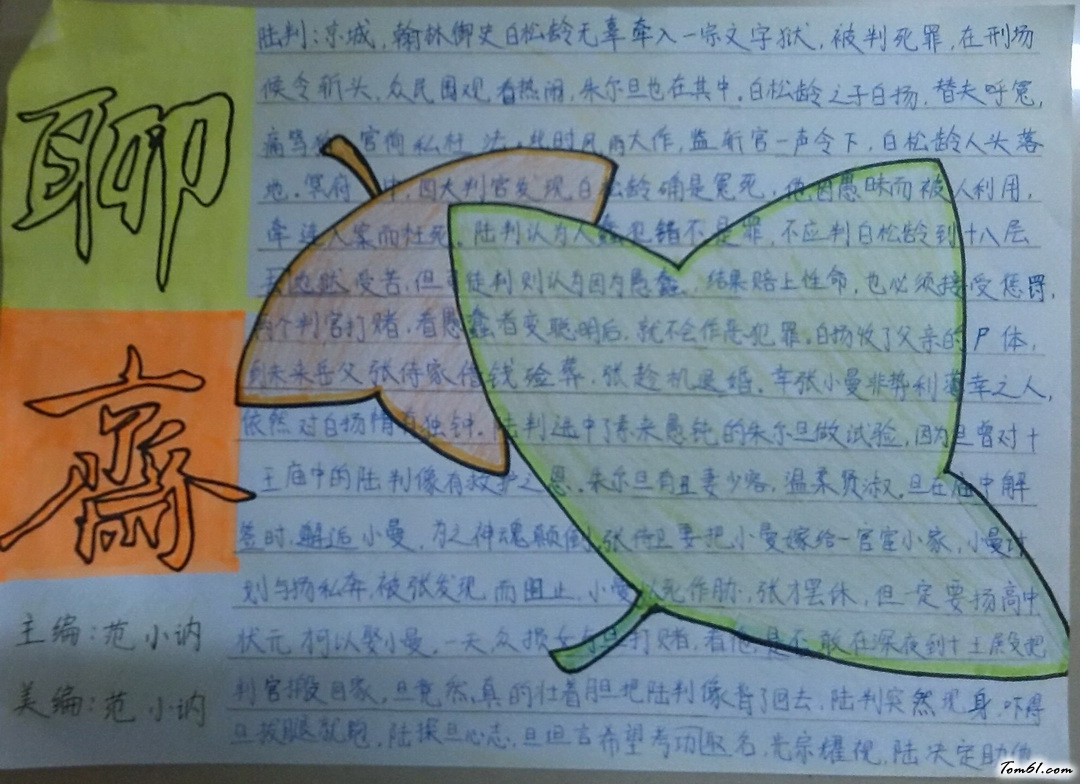 聊
斋
主编：范小讷
美编：范小讷
陆判：京城，翰林御史白松龄无辜牵入一宗文字狱，被判死罪，在刑场
候令斩头，众民围观看热闹，朱尔旦也在其中。白松龄之子白扬，替夫呼冤，
痛骂 官徇私枉法。此时风雨大作，监斩官一声令下，白松龄人头落
地。冥府 中，因大判官发现白松龄确是冤死，他因愚昧而被人利用，
牵连入案而枉死。陆判认为人蠢犯错不是罪，不应判白松龄到十八层
受苦，但 判则认为因为愚蠢，结果赔上性命，也必须接受惩罚，
两个判官打赌，看愚蠢者变聪明后，就不会作恶犯罪。白扬收了父亲的尸体，
到未来岳父张侍家借钱殓葬，张趁机退婚。幸张小曼非势利薄幸之人，
依然对白扬情有独钟。陆判选中了素来愚钝的朱尔旦做试验，因为旦曾对十
王庙中的陆判像有救护之恩。朱尔旦有丑妻少容，温柔贤淑。旦在庙中解
签时，邂逅小曼，为之神魂颠倒，张侍卫要把小曼嫁给一官宦小家，小曼计
划与扬私奔，被张发现而阻止，小曼以死作胁，张才罢休，但一定要扬高中
状元才可以娶小曼。一天，众损友与旦打赌，看他是否敢在深夜到十王殿把
判官搬回家，旦竟然真的壮着胆把陆判像背了回去，陆判突然现身，吓得
旦拔腿就跑，陆探旦心志，旦坦言希望考功取名，光宗耀祖，陆决定助他
Tom61.com